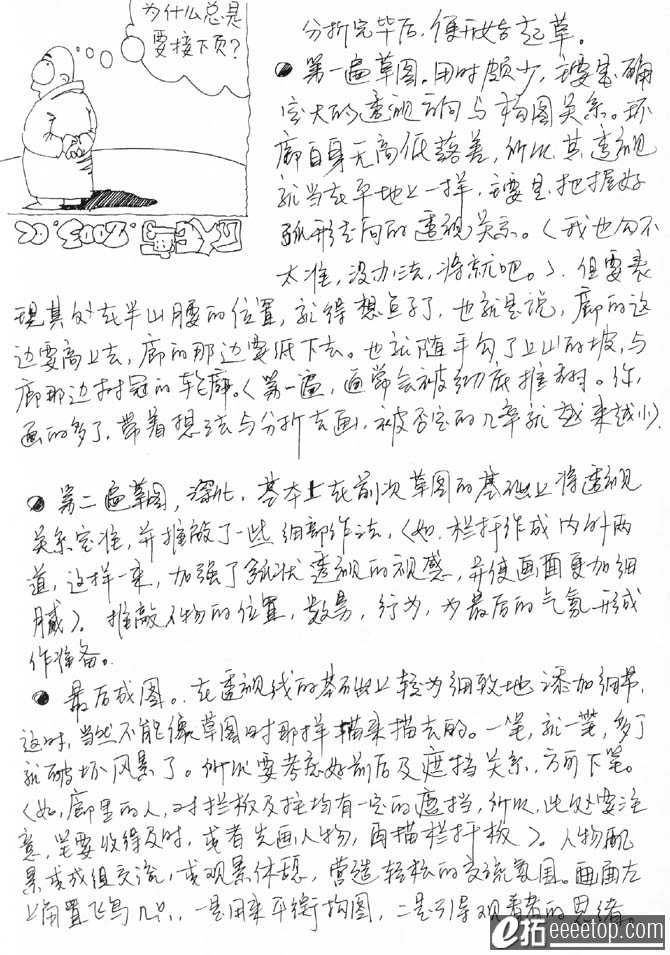 为什么总是
要接下页?
分析完毕后,便开始起草。
● 第一遍草图。用时颇少,主要是确
定大的透视方向与构图关系。环
廊自身无高低落差,所以,其透视
就当在平地上一样,主要是把握好
弧形走向的透视关系。(我也勾不
太准,没办法,将就吧。)但要表
现其处在半山腰的位置,就得想点子了,也就是说,廊的这
边要高上去,廊的那边要低下去。也就随手勾了上山的坡,与
廊那边树冠的轮廓。(第一遍,通常会被彻底推翻。你,
画的多了,带着想法与分析去画,被否定的几率就越来越小)
● 第二遍草图,深化,基本上在前次草图的基础上将透视
关系定准,并推敲了一些细部作法,(如,栏杆作成内外两
道,这样一来,加强了弧状透视的视感,并使画面更加细
腻)。推敲人物的位置,数量,行为,为最后的气氛形成
作准备。
● 最后成图。在透视线的基础上较为细致地添加细节,
这时,当然不能像草图时那样描来描去的。一笔,就一笔,多了
就破坏风景了。所以要考虑好前后及遮挡关系,方可下笔。
(如,廊里的人,对拦板及柱均有一定的遮挡,所以,此处要注
意,笔要收得及时,或者先画人物,再描栏杆板)。人物配
景或成组交流,或观景休憩,营造轻松的交流氛围。画面左
上角置飞鸟几只,一是用来平衡构图,二是引导观看者的思绪。
e拓 eeeetop.com